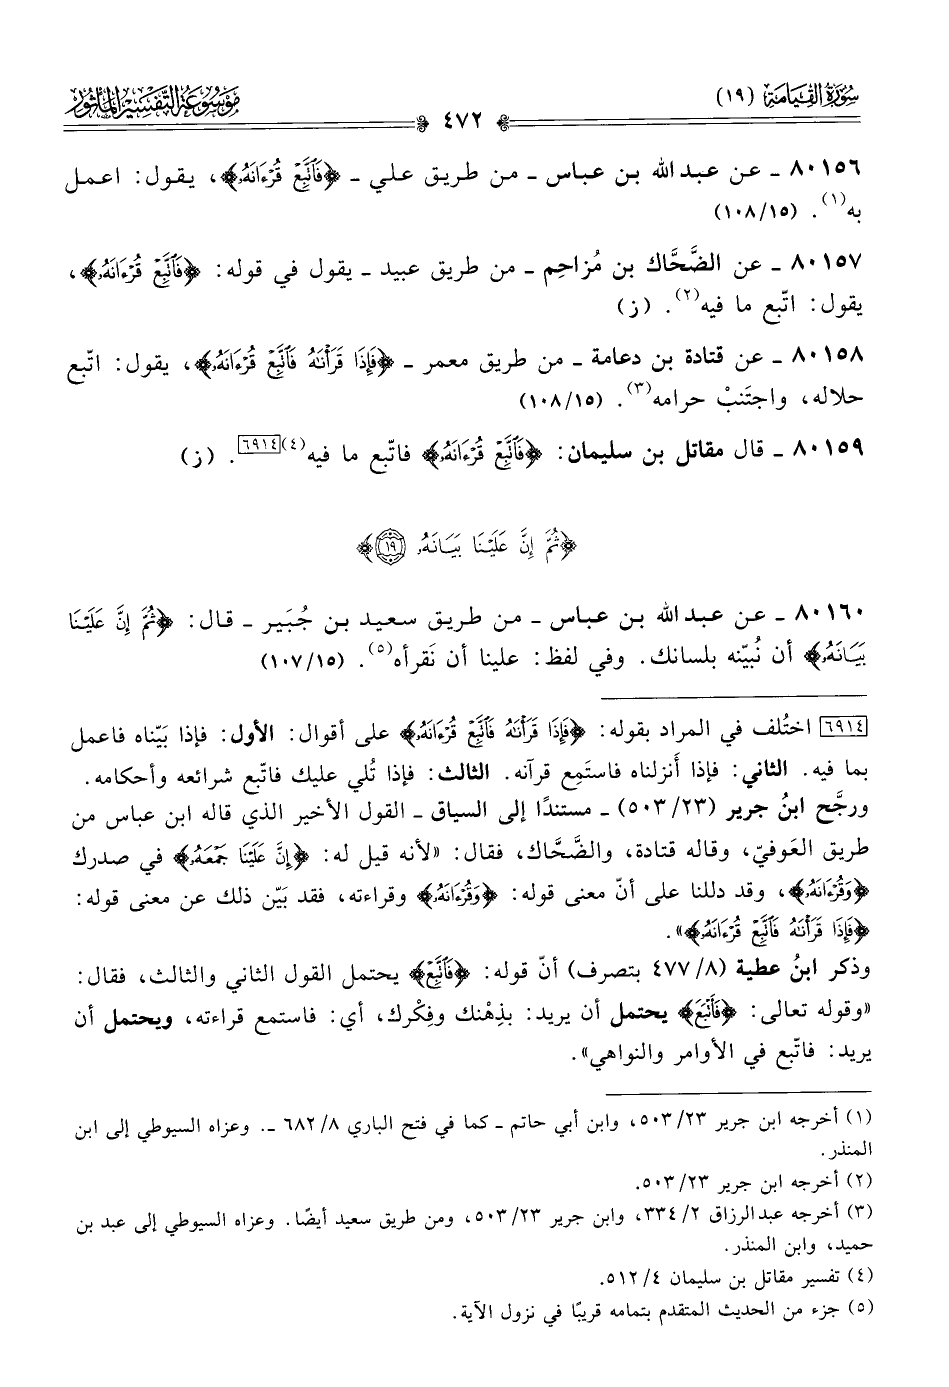 سورة القيامة (١٩)
موسوعة التفسير المأثور
٤٧٢
٨٠١٥٦ ـ عن عبد الله بن عباس ـ من طريق علي ـ ﴿فَٱتَّبِعۡ قُرۡءَانَهُۥ﴾، يقول: اعمل
به(١). (١٥/١٠٨)
٨٠١٥٧ ـ عن الضَّحَّاك بن مُزاحِم ـ من طريق عبيد ـ يقول في قوله: ﴿فَٱتَّبِعۡ قُرۡءَانَهُۥ﴾،
يقول: اتّبع ما فيه(٢). (ز)
٨٠١٥٨ ـ عن قتادة بن دعامة ـ من طريق معمر ـ ﴿فَإِذَا قَرَأۡنَٰهُ فَٱتَّبِعۡ قُرۡءَانَهُۥ﴾، يقول: اتّبع
حلاله، واجتَنبْ حرامه(٣). (١٥/١٠٨)
٨٠١٥٩ ـ قال مقاتل بن سليمان: ﴿فَٱتَّبِعۡ قُرۡءَانَهُۥ﴾ فاتّبع ما فيه(٤)[٦٩١٤]. (ز)
﴿ثُمَّ إِنَّ عَلَيۡنَا بَيَانَهُۥ ١٩﴾
٨٠١٦٠ ـ عن عبد الله بن عباس ـ من طريق سعيد بن جُبَير ـ قال: ﴿ثُمَّ إِنَّ عَلَيۡنَا
بَيَانَهُۥ﴾ أن نُبيّنه بلسانك. وفي لفظ: علينا أن نَقرأه(٥). (١٥/١٠٧)
[٦٩١٤] اختُلف في المراد بقوله: ﴿فَإِذَا قَرَأۡنَٰهُ فَٱتَّبِعۡ قُرۡءَانَهُۥ﴾ على أقوال: الأول: فإذا بَيّناه فاعمل
بما فيه. الثاني: فإذا أَنزلناه فاستَمِع قرآنه. الثالث: فإذا تُلي عليك فاتّبع شرائعه وأحكامه.
ورجَّح ابنُ جرير (٢٣/٥٠٣) ـ مستندًا إلى السياق ـ القول الأخير الذي قاله ابن عباس من
طريق العَوفيّ، وقاله قتادة، والضَّحَّاك، فقال: «لأنه قيل له: ﴿إِنَّ عَلَيۡنَا جَمۡعَهُۥ﴾ في صدرك
﴿وَقُرۡءَانَهُۥ﴾، وقد دللنا على أنّ معنى قوله: ﴿وَقُرۡءَانَهُۥ﴾ وقراءته، فقد بَيّن ذلك عن معنى قوله:
﴿فَإِذَا قَرَأۡنَٰهُ فَٱتَّبِعۡ قُرۡءَانَهُۥ﴾».
وذكر ابنُ عطية (٨/٤٧٧ بتصرف) أنّ قوله: ﴿فَٱتَّبِعۡ﴾ يحتمل القول الثاني والثالث، فقال:
«وقوله تعالى: ﴿فَٱتَّبِعۡ﴾ يحتمل أن يريد: بذِهْنك وفِكْرك، أي: فاستمع قراءته، ويحتمل أن
يريد: فاتّبع في الأوامر والنواهي».
(١) أخرجه ابن جرير ٢٣/٥٠٣، وابن أبي حاتم ـ كما في فتح الباري ٨/٦٨٢ ـ. وعزاه السيوطي إلى ابن
المنذر.
(٢) أخرجه ابن جرير ٢٣/٥٠٣.
(٣) أخرجه عبد الرزاق ٢/٣٣٤، وابن جرير ٢٣/٥٠٣، ومن طريق سعيد أيضًا. وعزاه السيوطي إلى عبد بن
حميد، وابن المنذر.
(٤) تفسير مقاتل بن سليمان ٤/٥١٢.
(٥) جزء من الحديث المتقدم بتمامه قريبًا في نزول الآية.